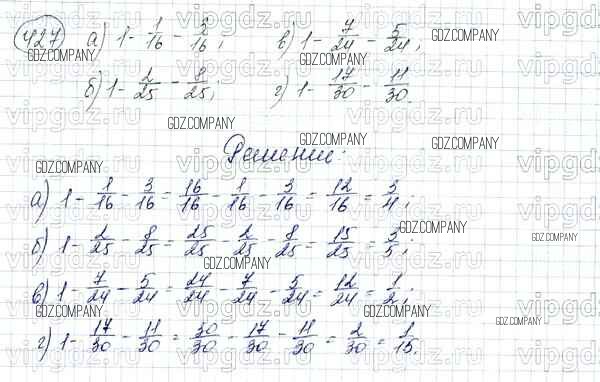 427 а) 1 - 1/16 - 3/16; в) 1 - 7/24 - 5/24;
б) 1 - 2/25 - 8/25; г) 1 - 17/30 - 11/30.
Решение:
а) 1 - 1/16 - 3/16 = 16/16 - 1/16 - 3/16 = 12/16 = 3/4;
б) 1 - 2/25 - 8/25 = 25/25 - 2/25 - 8/25 = 15/25 = 3/5;
в) 1 - 7/24 - 5/24 = 24/24 - 7/24 - 5/24 = 12/24 = 1/2;
г) 1 - 17/30 - 11/30 = 30/30 - 17/30 - 11/30 = 2/30 = 1/15.
GDZ.COMPANY
GDZ.COMPANY
GDZ.COMPANY
GDZ.COMPANY
GDZ.COMPANY
GDZ.COMPANY
GDZ.COMPANY
GDZ.COMPANY
GDZ.COMPANY
vipgdz.ru